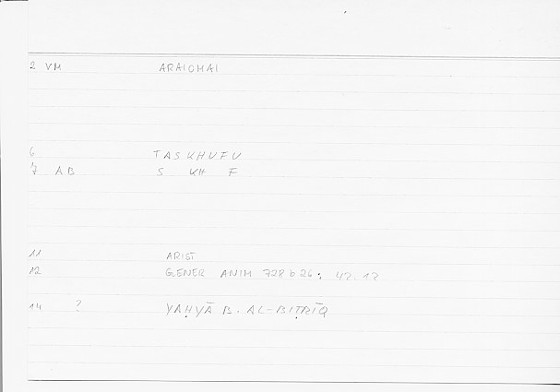 2 VM ARAIOMAI
6 TASKHUFU
7 AB S KH F
11 ARIST
12 GENER ANIM 728b26; 47.17
14 ? YAḤYĀ B. AL-BIṬRĪQ